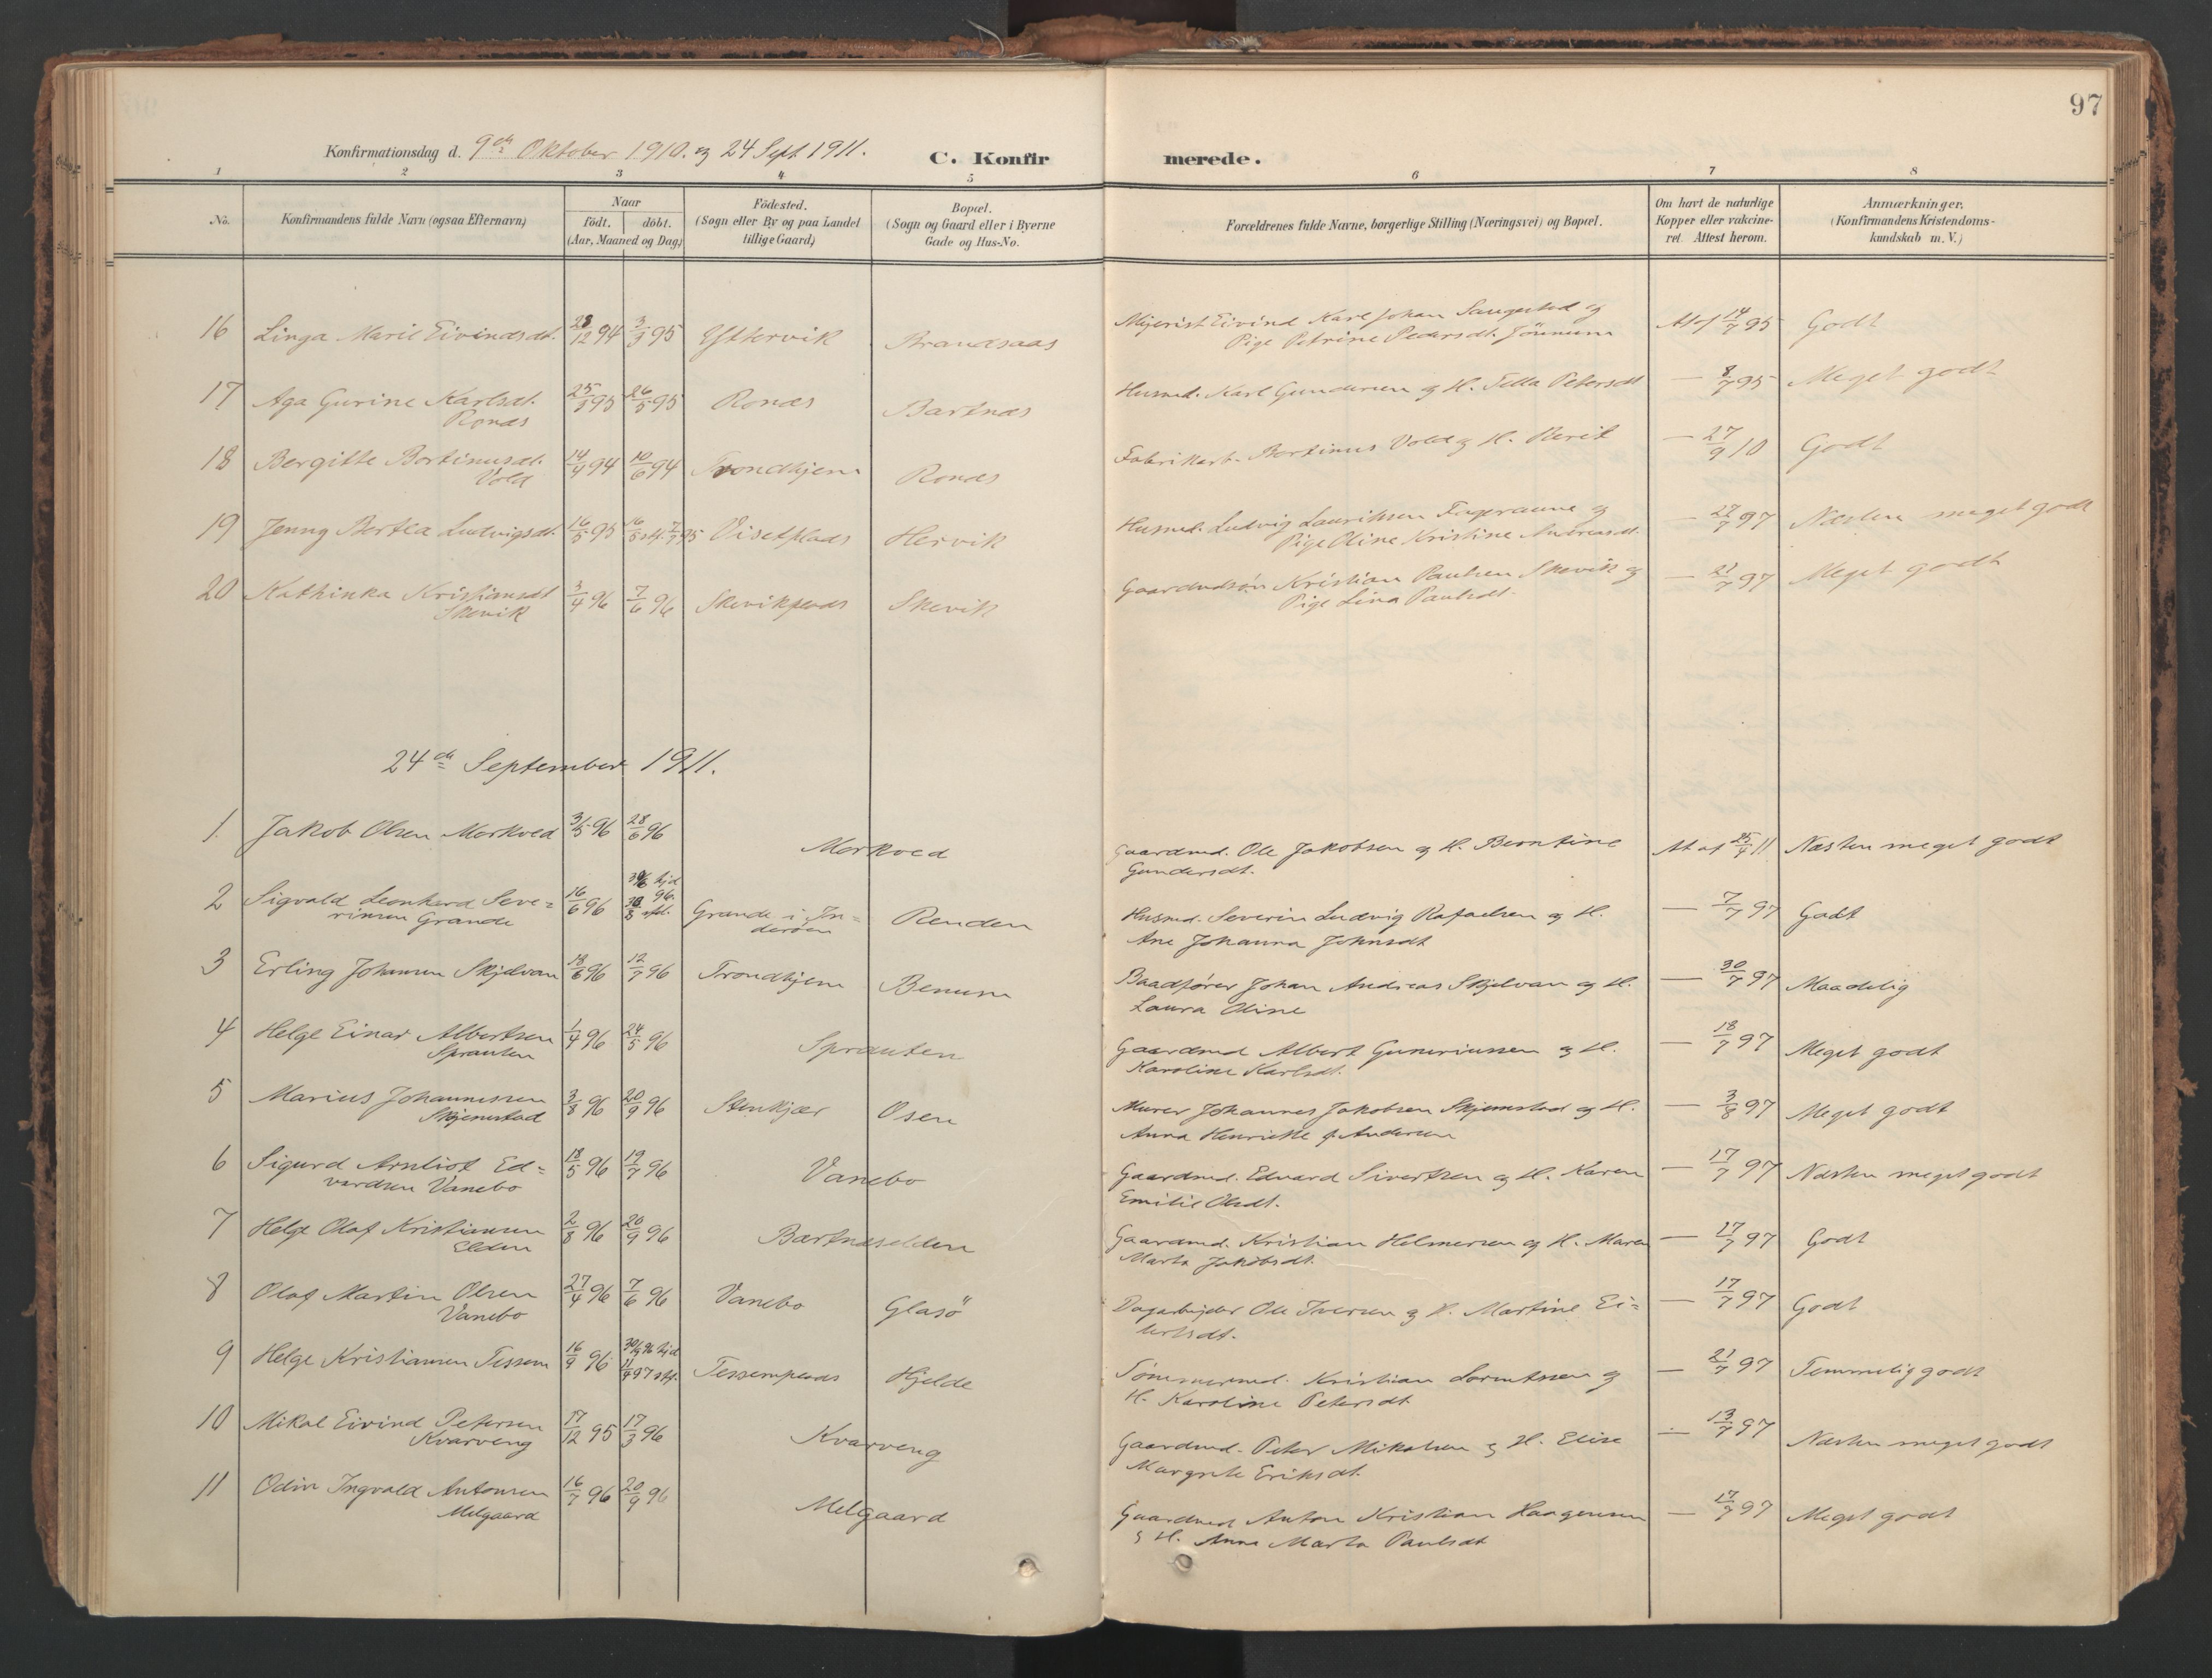 97
Konfirmationsdag d. 9de Oktober 1910. og 24 Sept 1911.
C. Konfirmerede.
1 2 3 4 5 6 7 8
No.
Konfirmandens fulde Navn (ogsaa Efternavn)
Naar
födt. döbt.
(Aar, Maaned og Dag)
Födested.
(Sogn eller By og paa Landet
tillige Gaard)
Bopæl.
(Sogn og Gaard eller i Byerne
Gade og Hus-No.
Forældrenes fulde Navne, borgerlige Stilling (Næringsvei) og Bopæl.
Om havt de naturlige
Kopper eller vakcine-
ret. Attest herom.
Anmærkninger.
(Konfirmandens Kristendoms-
kundskab m. V.)
16 Linga Marie Eivindsdt. 28/12 94 3/3 95 Yttervik Brandsaas Mejerist Eivind Karl Johan Saugestad og
Pige Petrine Pedersdt. At af 14/7 95 Godt
17 Aga Gurine Karlsdt. 25/3 95 26/5 95 Ronæs Bartnæs Husmd. Karl Gundersen og H. Petersdt — 8/7 95 Meget godt
Ronæs
18 Bergitte Bortinusdt. 14/4 94 10/6 94 Trondhjem Ronæs Fabrikarb. Bortinus Vold og H. Berit — 27/9 10 Godt
Vold
19 Jenny Bertea Ludvigsdt. 16/5 95 Visetplads Hervik Husmd. Ludvig Lauritsen og
Pige Oline Kristine Andreasdt. — 27/7 97 Næsten meget godt
20 Kathinka Kristiansdt 3/4 96 7/6 96 Skevikplads Skevik Gaardmdsøn Kristian Paulsen Skevik og
Skevik Pige Lina Paulsdt. — 21/7 97 Meget godt
24de September 1911.
1. Jakob Olsen Morkved 3/5 96 28/6 96 Morkved Gaardmd. Ole Jakobsen og H. Berntine
Gundersdt. At af 25/4 11 Næsten meget godt
2 Sigvald Leonhard Seve= 16/6 96 Grande i In= Renden Husmd. Severin Ludvig Rafaelsen og H.
rinsen Grande derøen Ane Johanna Johnsdt — 7/7 97 Godt
3 Erling Johansen Skjelvan 18/6 96 12/7 96 Trondhjem Benum Baadfører Johan Andreas Skjelvan og H.
Laura Oline — 30/7 97 Maadelig
4 Helge Einar Albertsen 1/4 96 24/5 96 Sprauten Gaardmd Albert Guneriussen og H.
Sprauten Karoline Karlsdt. — 18/7 97 Meget godt
5 Marius Johannessen 3/8 96 20/9 96 Stenkjær Osen Murer Johannes Jakobsen Skjemstad og H.
Skjemstad Anna Henriette f. Andersen — 3/8 97 Meget godt
6 Sigurd Arnliot Ed= 18/5 96 19/7 96 Vanebo Gaardmd. Edvard Sivertsen og H. Karen
vardsen Vanebo Emilie Olsdt. — 17/7 97 Næsten meget godt
7 Helge Olaf Kristiansen 2/8 96 20/9 96 Bartnæselden Gaardmd. Kristian Helmersen og H. Maren
Elden Marta Jakobsdt. — 17/7 97 Godt
8 Olaf Martin Olsen 27/4 96 7/6 96 Vanebo Glasö Dagarbejder Ole Iversen og H. Martine Ei=
Vanebo lertsdt. — 17/7 97 Godt
9 Helge Kristiansen Tessem 16/9 96 30/9 96 hjd 11/4 97 stf. Tessemplads Hjelde Tømmermd. Kristian Lorentssen og
H. Karoline Petersdt — 21/7 97 Temmelig godt
10 Mikal Eivind Petersen 17/12 95 17/3 96 Kvarveng Gaardmd. Peter Mikalsen og H. Elise
Kvarveng Margrete Eriksdt. — 13/7 97 Næsten meget godt
11 Odin Ingvald Antonsen 16/7 96 20/9 96 Melgaard Gaardmd Anton Kristian Haagensen
Melgaard og H. Anna Marta Paulsdt — 17/7 97 Meget godt